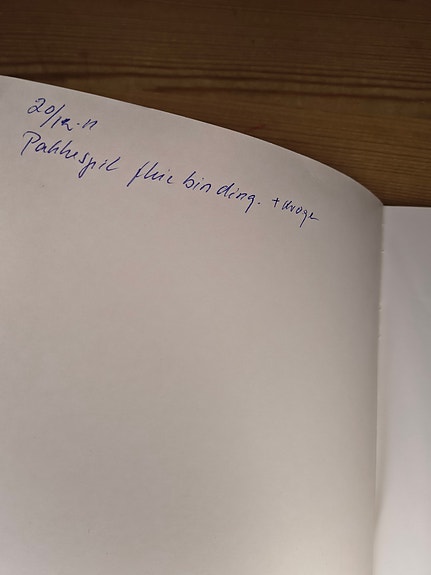 20/12-11
Pakkespil flue binding. + Kroge